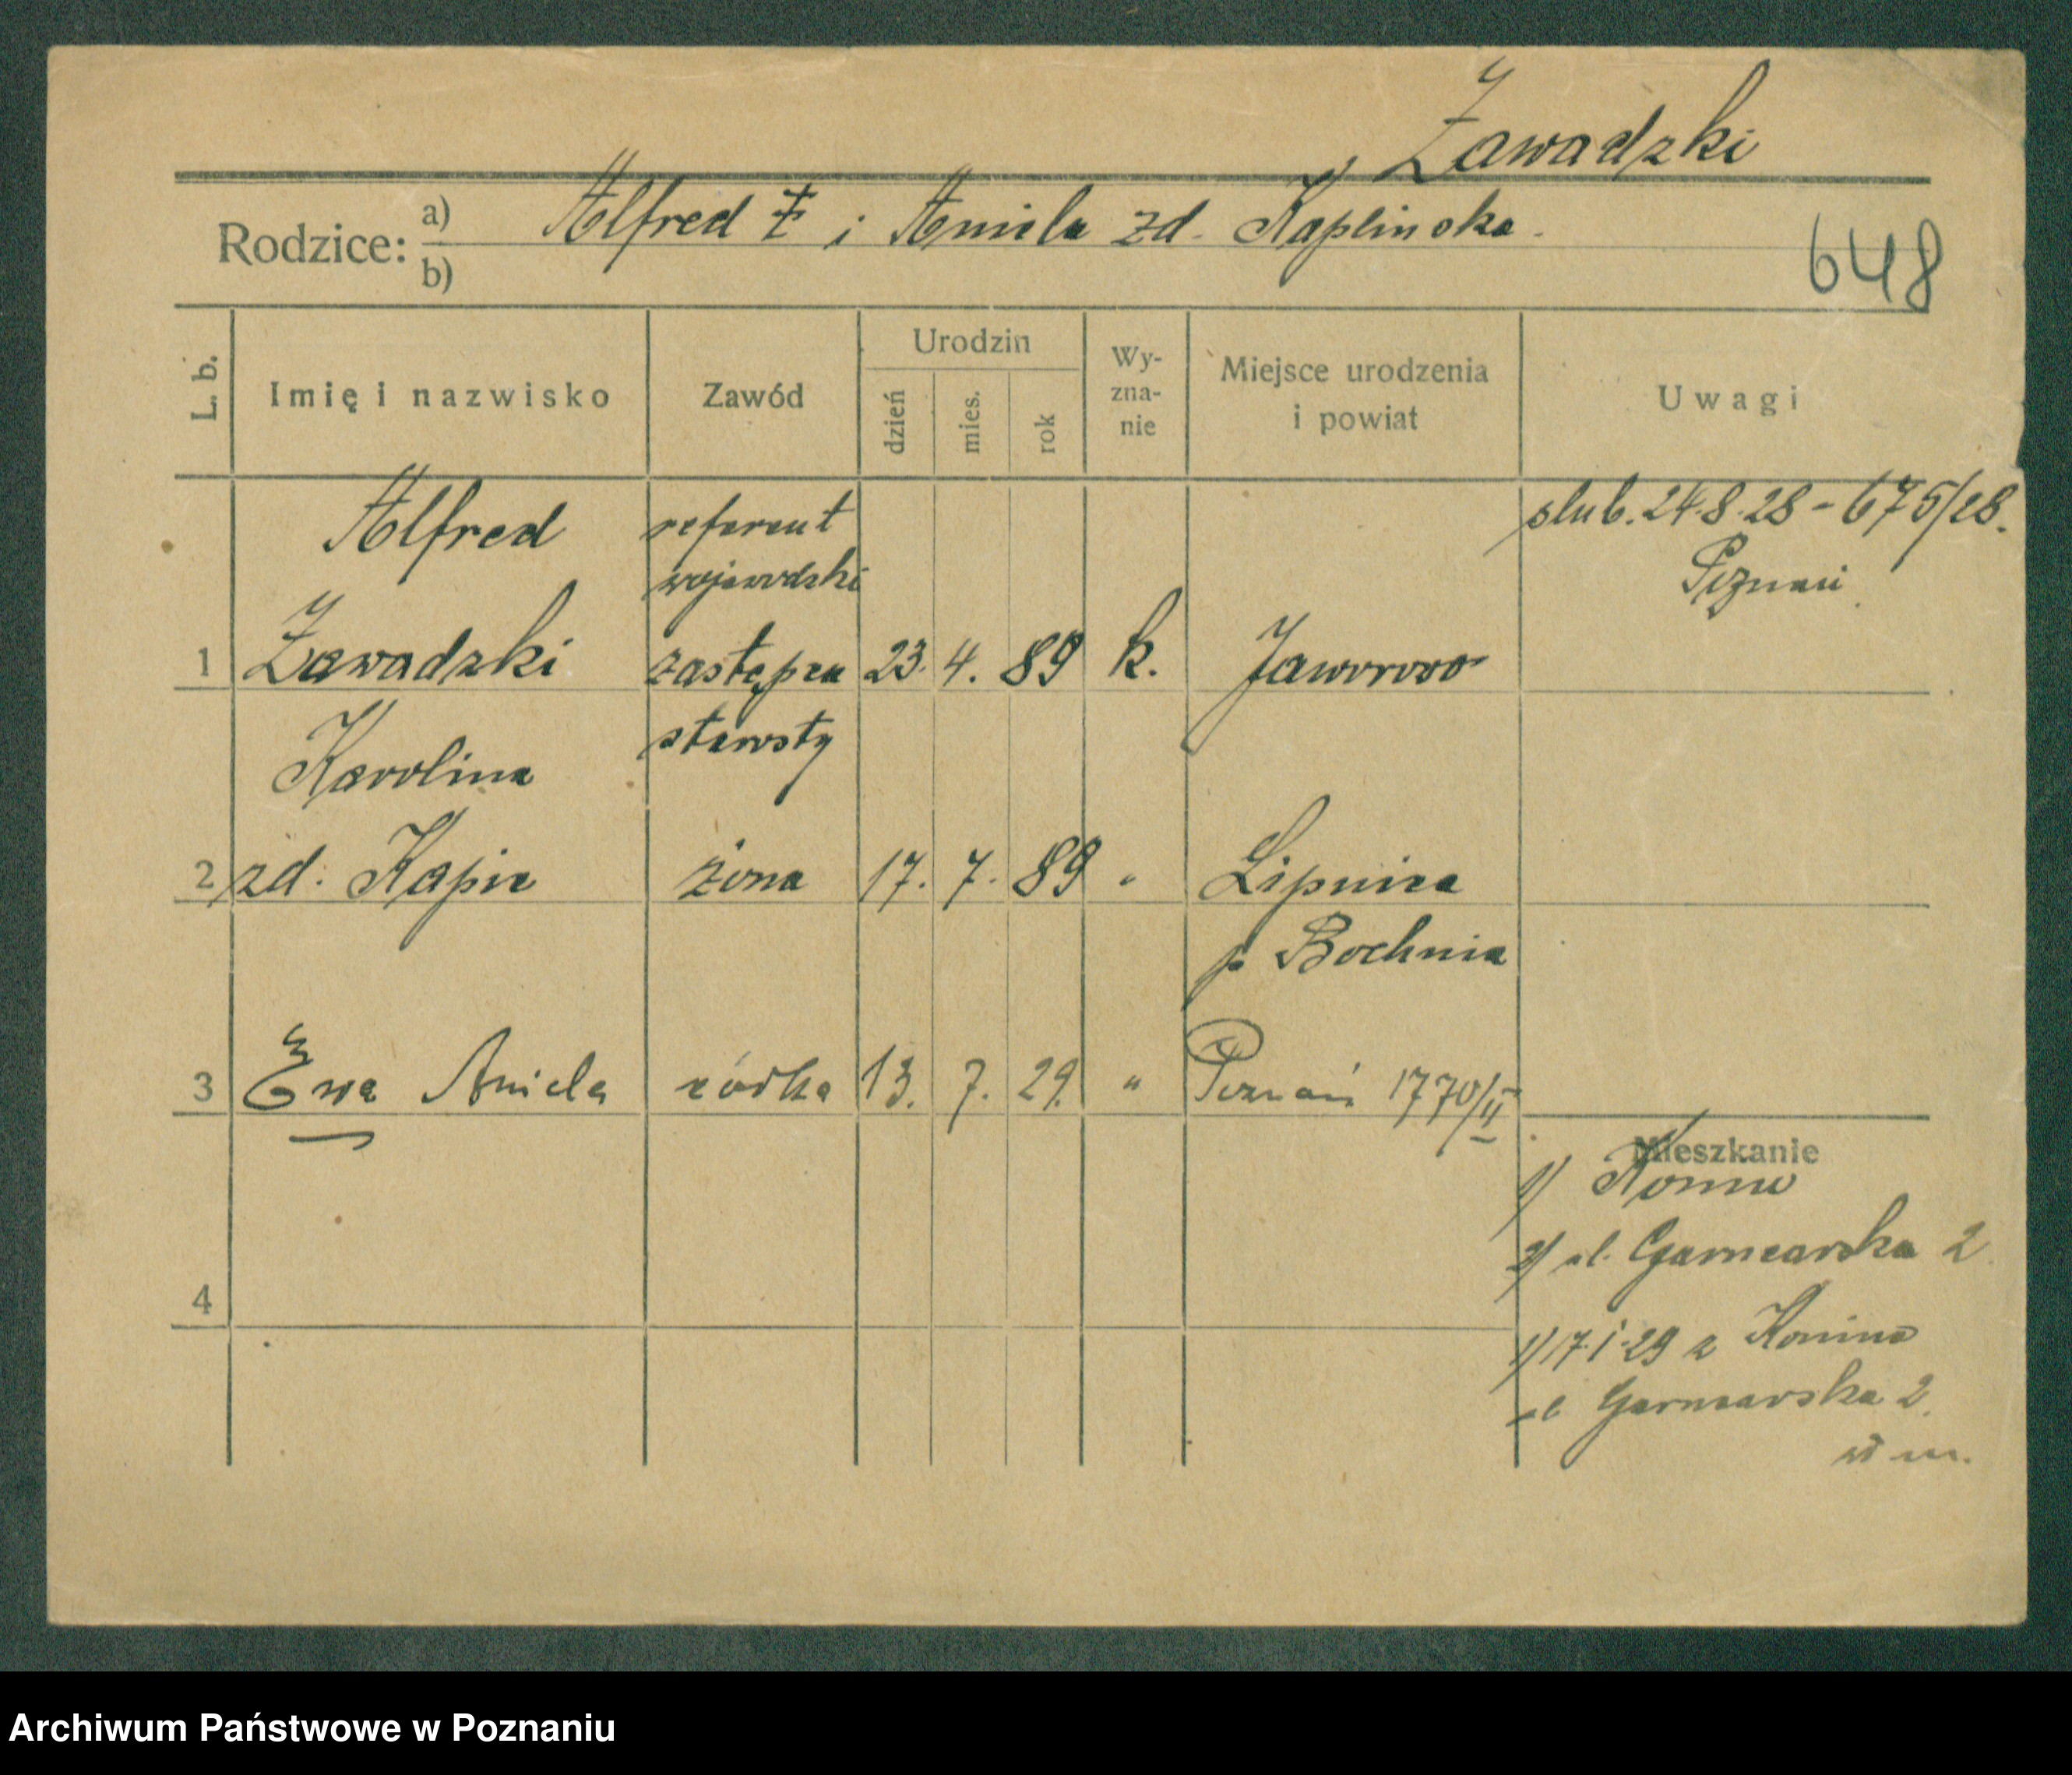 Zawadzki
Rodzice: a) Alfred Z i Aniela zd. Kaplinska.
b)
648
L. b.
Imię i nazwisko
Zawód
Urodzin
dzień
mies.
rok
Wy-
zna-
nie
Miejsce urodzenia
i powiat
Uwagi
Alfred
referent
wojewodzki
ślub. 24.8.28 - 675/28.
Poznań
1 Zawadzki zastępca 23. 4. 89 k. Jaworowo
starosty
Karolina
2 zd. Kapic żona 17. 7. 89 " Lipnica
p Bochnia
3 Ewa Aniela córka 13. 7. 29. " Poznań 1770/II
Mieszkanie
1) Konin
2) ul. Garncarska 2
4
1) 17.1.29 z Konina
ul Garncarska 2.
Archiwum Państwowe w Poznaniu